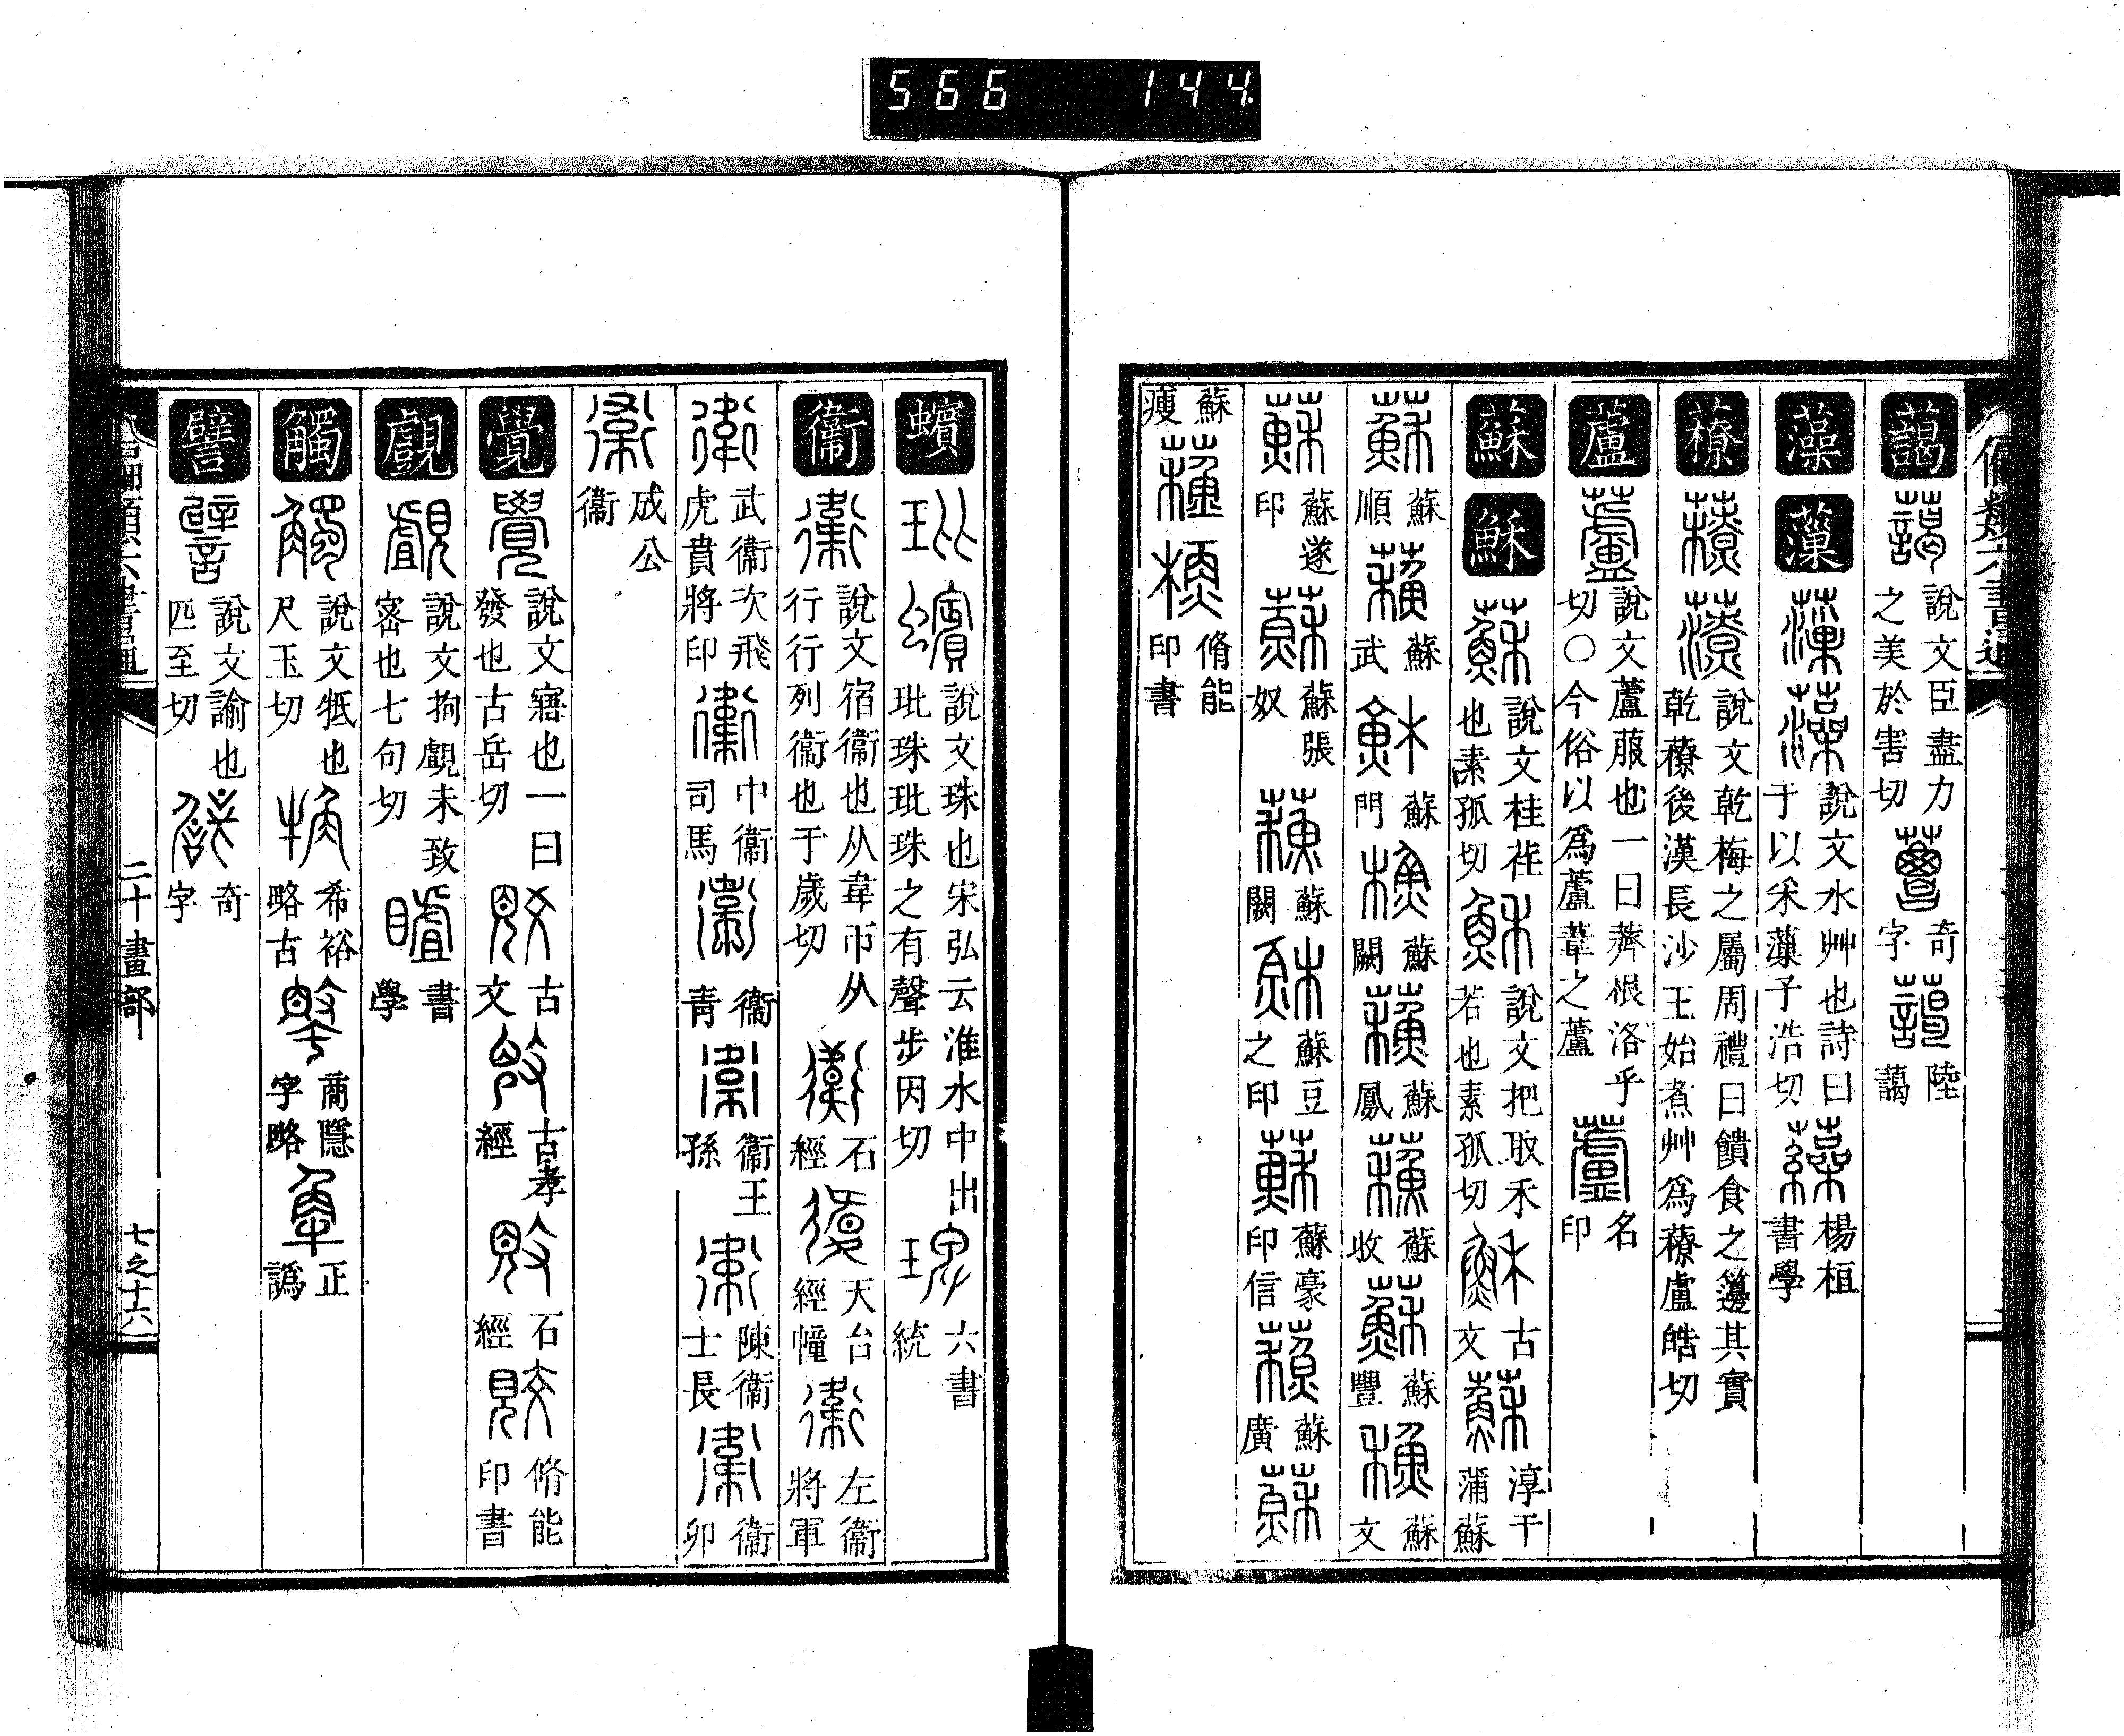 566 144
偏類六書通
藹 說文臣盡力之美於害切 奇字 陸藹
藻 薻 說文水艸也詩曰于以采薻子浩切 楊桓書學
䕩 說文乾梅之屬周禮曰饋食之籩其實乾䕩後漢長沙王始煮艸爲䕩盧皓切
蘆 說文蘆菔也一曰薺根洛乎切〇今俗以爲蘆葦之蘆 名印
蘇 穌 說文桂荏也素孤切 說文把取禾若也素孤切 古文 淳于蒲蘇
蘇順 蘇武 蘇門 蘇闕 蘇鳳 蘇收 蘇豐 蘇文
蘇遂印 蘇張奴 蘇闕 蘇豆之印 蘇豪印信 蘇廣
蘇瘦 脩能印書
蠙 說文珠也宋弘云淮水中出玭珠玭珠之有聲步因切 六書統
衞 說文宿衞也从韋帀从行行列衞也于歲切 石經 天台經幢 左衞將軍
武衞次飛虎賁將印 中衞司馬 衞青 衞王孫 陳衞士長 衞卯
成公衞
覺 說文寤也一曰發也古岳切 古文 古孝經 石經 脩能印書
覰 說文拘覰未致密也七句切 書學
觸 說文牴也尺玉切 希裕略古 商隱字略 正譌
譬 說文諭也匹至切 奇字
二十畫部 七之十六